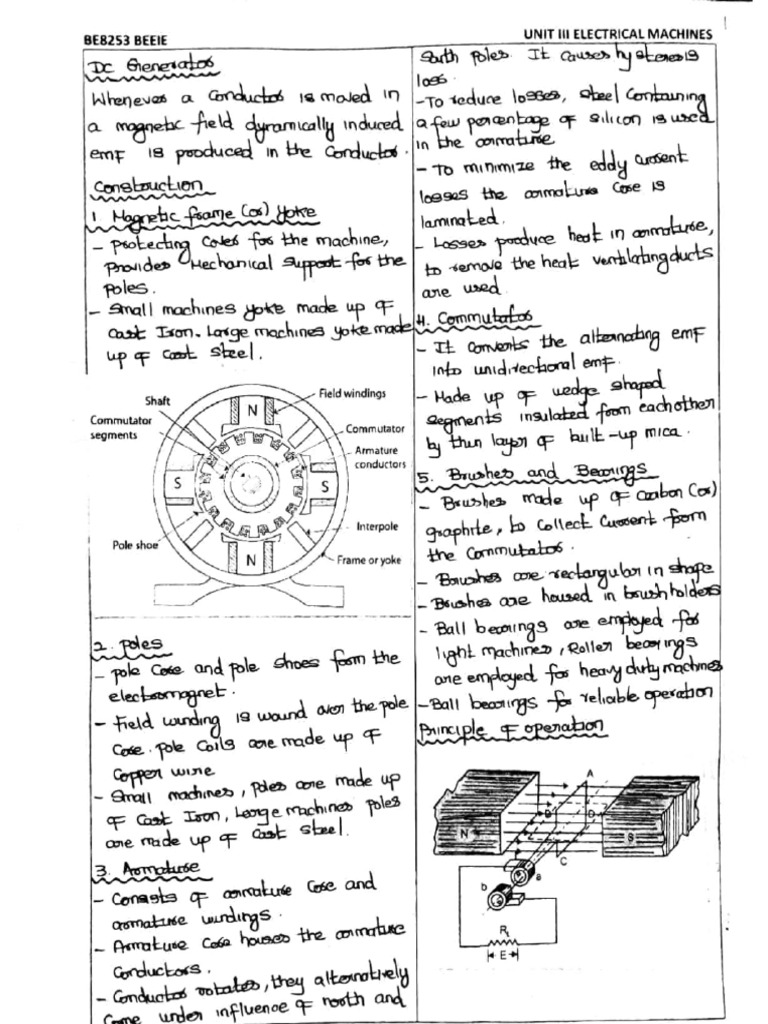 BE8253 BEEIE
UNIT III ELECTRICAL MACHINES
1
DC Generator
Whenever a conductor is moved in
a magnetic field dynamically induced
emf is produced in the conductor.
Construction
1. Magnetic frame (or) Yoke
- Protecting cover for the machine,
Provides Mechanical Support for the
Poles.
- Small machines yoke made up of
Cast Iron. Large machines yoke made
up of Cast Steel.
Shaft
Field windings
N
Commutator
segments
Commutator
Armature
conductors
S
S
Interpole
Pole shoe
N
Frame or yoke
2. Poles
- Pole core and pole shoes form the
electromagnet.
- Field winding is wound over the pole
core. Pole coils are made up of
Copper wire
- Small machines, poles are made up
of Cast Iron, Large machines poles
are made up of Cast Steel.
3. Armature
- Consists of armature core and
armature windings.
- Armature core houses the armature
Conductors.
- Conductor rotates, they alternatively
Come under influence of north and
South Poles. It causes hysteresis
loss.
- To reduce losses, steel containing
a few percentage of silicon is used
in the armature
- To minimize the eddy current
losses the armature core is
laminated.
- Losses produce heat in armature,
to remove the heat ventilating ducts
are used.
4. Commutator
- It converts the alternating emf
into unidirectional emf.
- Made up of wedge shaped
segments insulated from each other
by thin layer of built-up mica.
5. Brushes and Bearings
- Brushes made up of carbon (or)
graphite, to collect current from
the commutator.
- Brushes are rectangular in shape
- Brushes are housed in brush holders
- Ball bearings are employed for
light machines, Roller bearings
are employed for heavy duty machines
- Ball bearings for reliable operation
Principle of operation
A
N
B
D
S
C
a
b
R
E